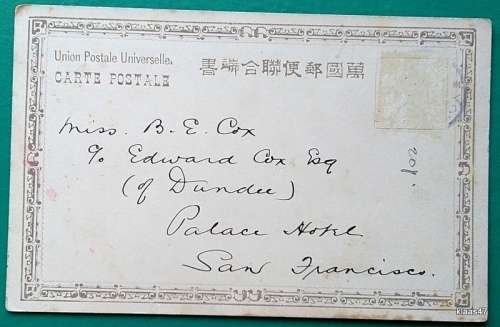 Union Postale Universelle.
CARTE POSTALE
書端合聯便郵國萬
Miss. B. E. Cox
c/o Edward Cox Esq
(of Dundee)
Palace Hotel
San Francisco.
20/.
klaas47